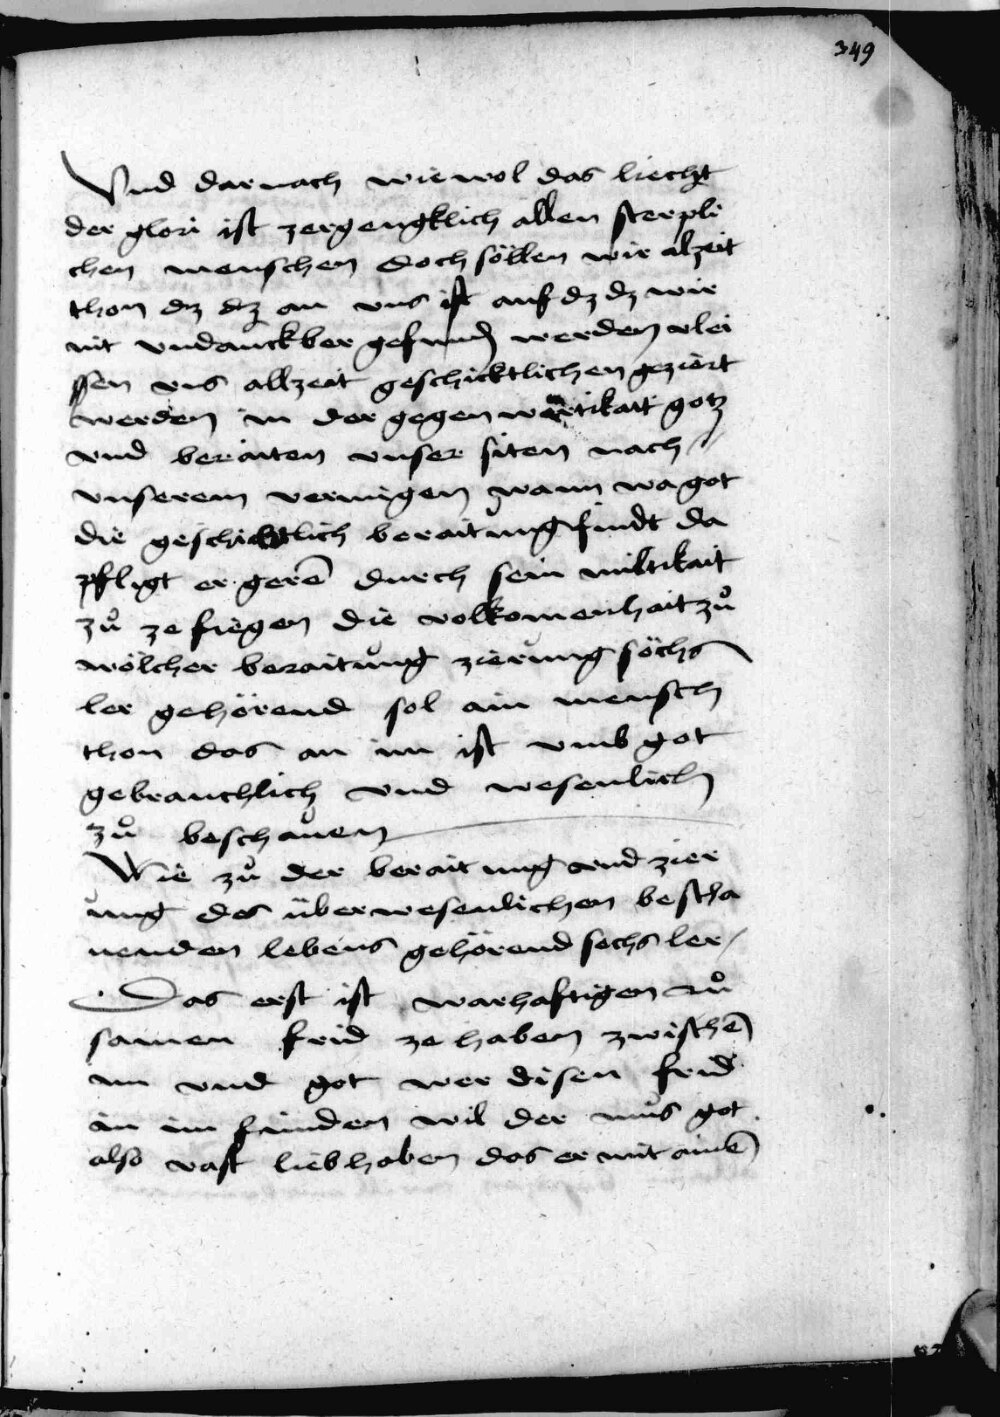 349
Vnd darnach wie wol das liecht
der glori ist zergengklich allen sterpli
chen menschen doch söllen wir alzeit
thon dz dz an vns ist auf dz dz wir
nit vndanckber gefund werden vlei
ssen vns allzeit geschicktlichen geziert
werden in der gegen wertikait gotz
vnd beraiten vnser siten nach
vnserem vermigen wann wa got
die geschicktlich beraitung findt da
pfligt er gerē durch sein miltikait
zů ze fiegen die volkomenhait zů
wölcher beraitung zierung söchs
ler gehörend sol ain mensch
thon das an im ist vmb got
gebrauchlich vnd wesenlich
zů beschauen
Wie zů der beraitung vnd zier
ung des überwesenlichen bescha
uenden lebens gehörend sechs ler
Das erst ist warhaftigen rů
samen frid ze haben zwischē
im vnd got wer disen frid
in im finden wil der mus got
also vast lieb haben das er mit ainē